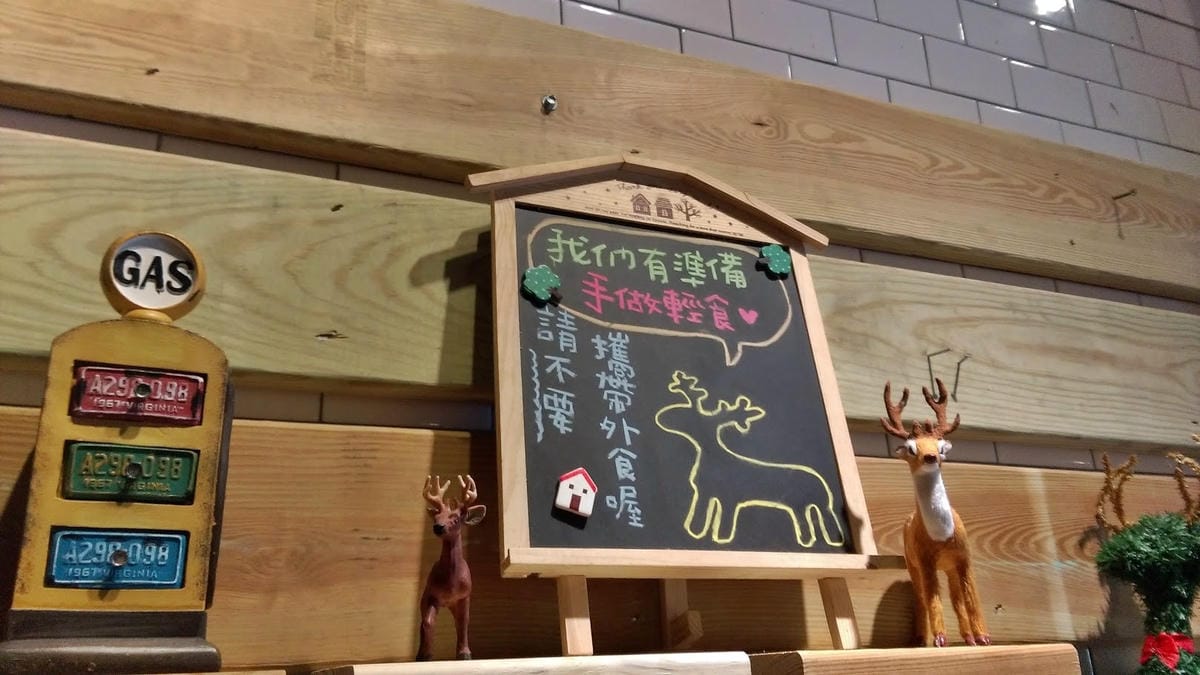 GAS
A298-098
1967 VIRGINIA
A298-098
1967 VIRGINIA
A298-098
1967 VIRGINIA
我们有準備
手做輕食♥
請不要
攜帶外食喔